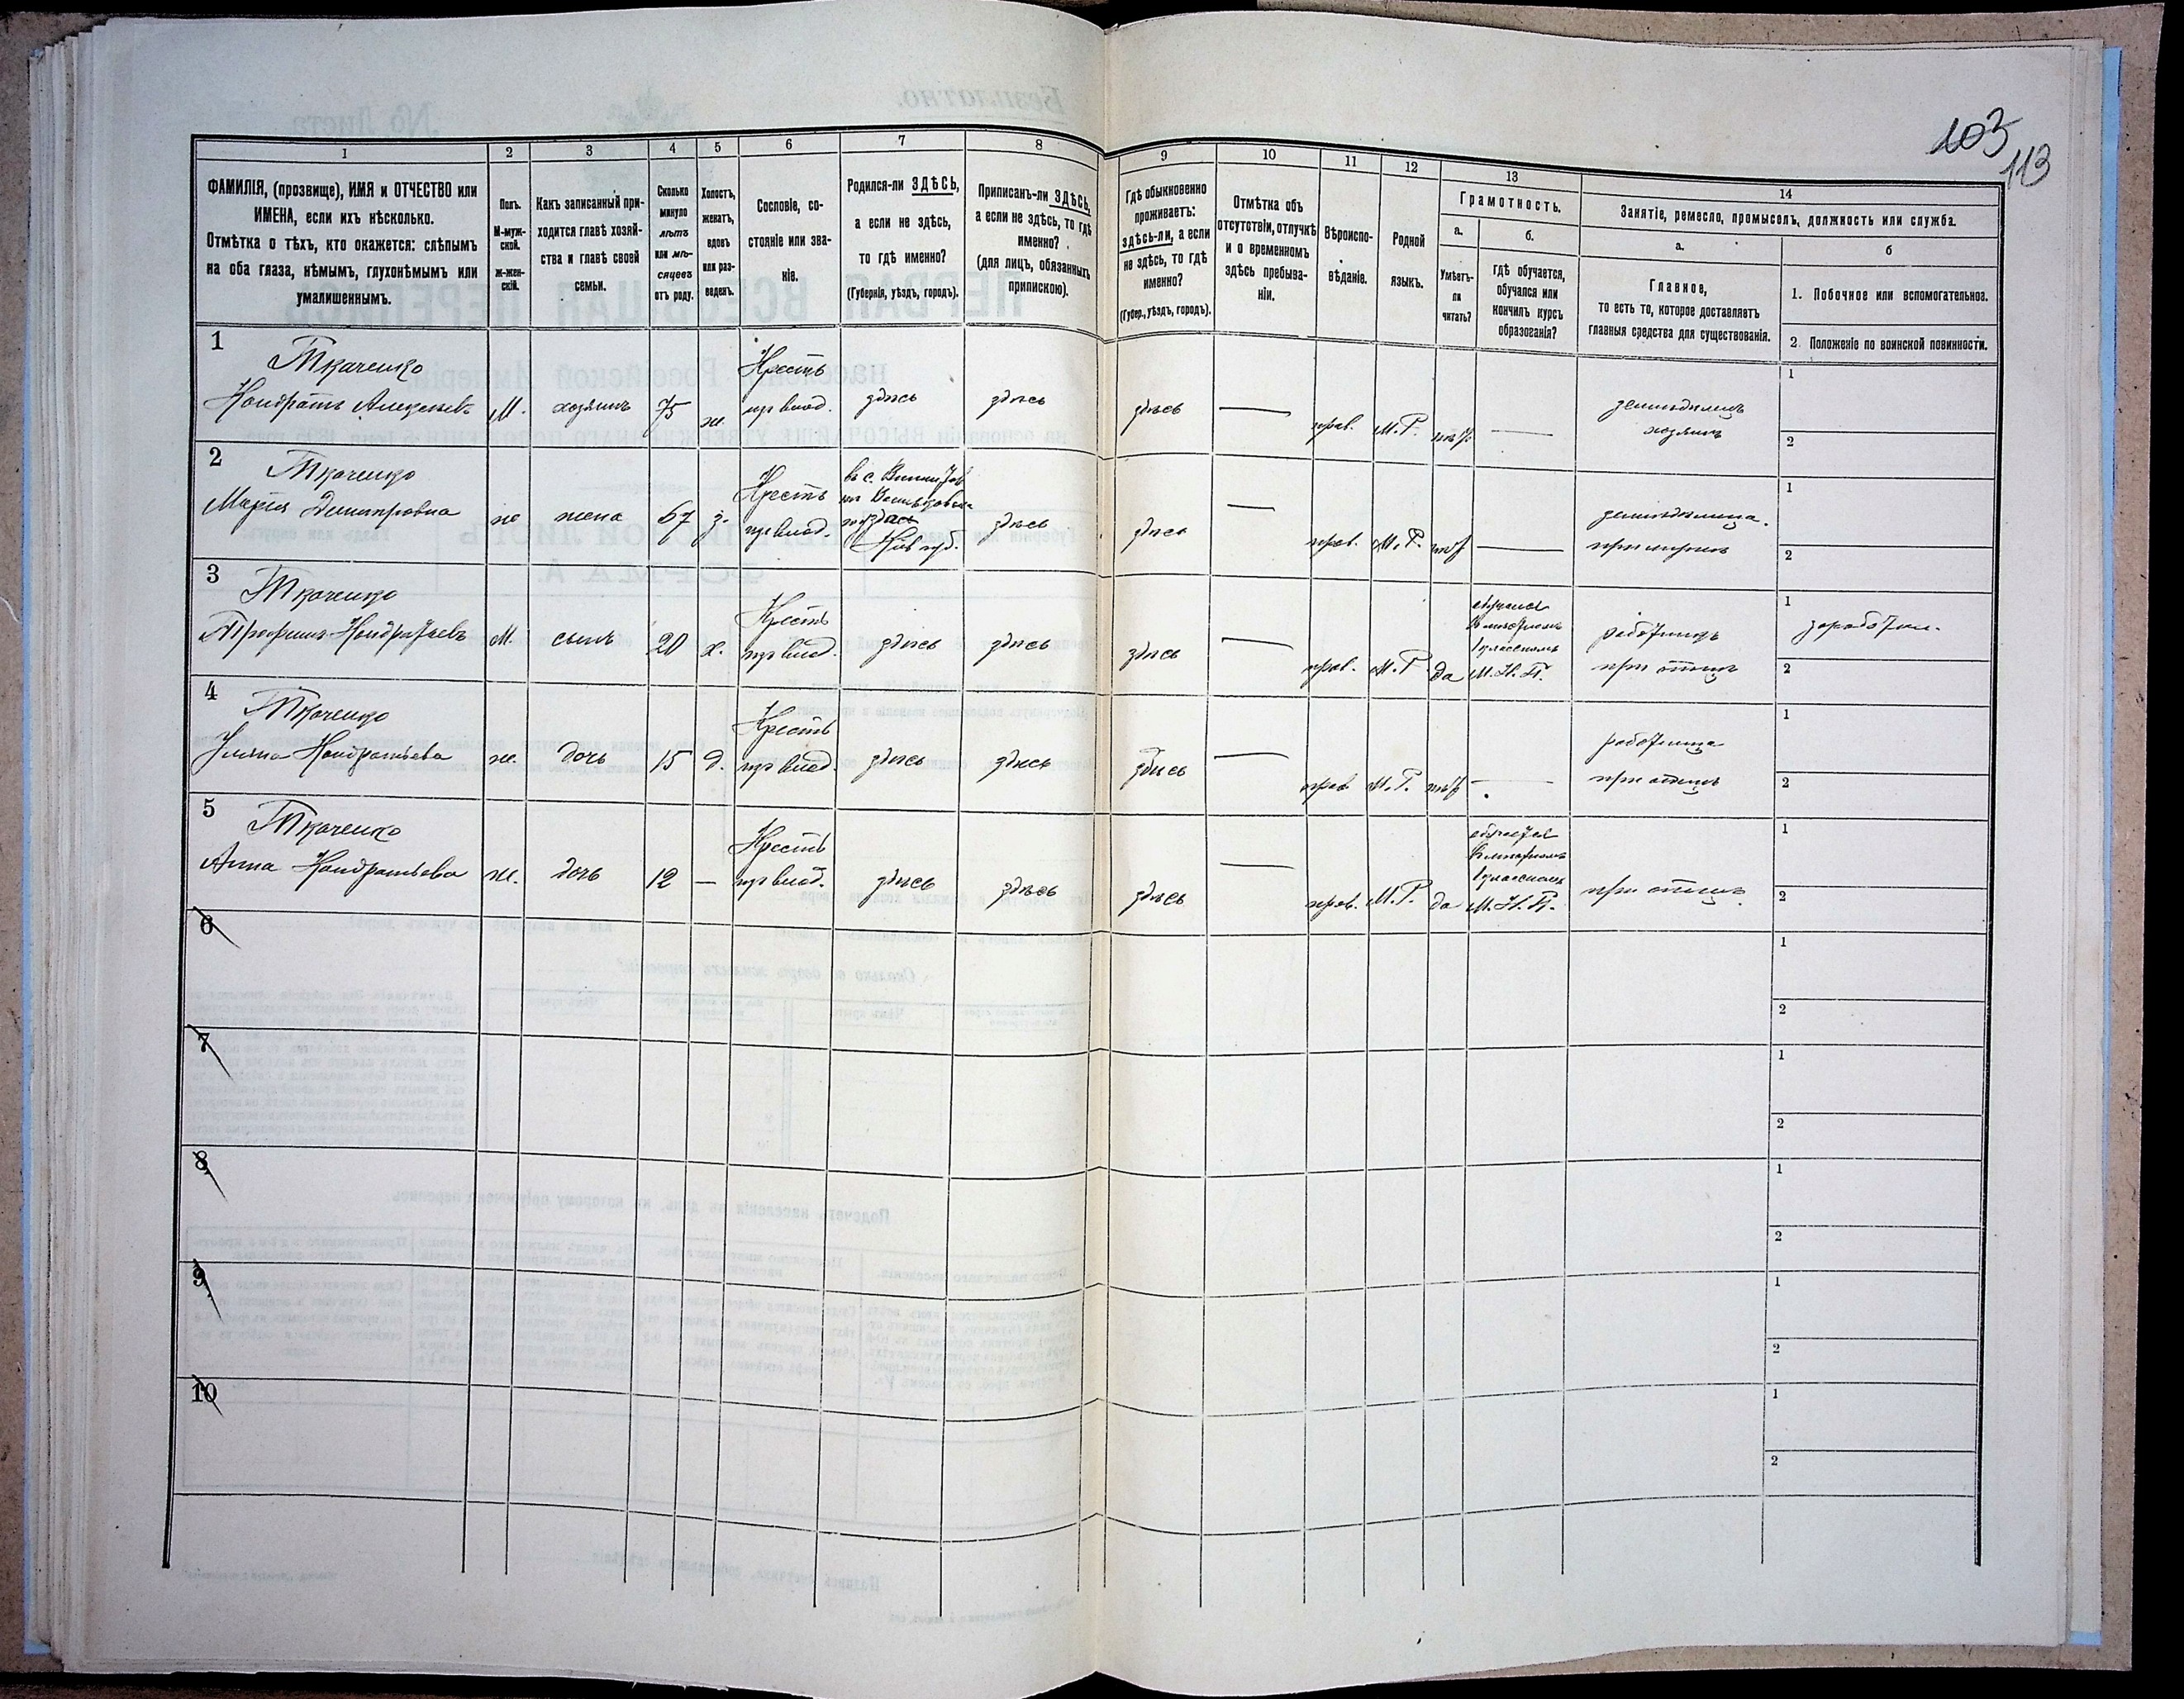 103
113
1
2
3
4
5
6
7
8
9
10
11
12
13
14
ФАМИЛІЯ, (прозвище), ИМЯ и ОТЧЕСТВО или
ИМЕНА, если ихъ нѣсколько.
Отмѣтка о тѣхъ, кто окажется: слѣпымъ
на оба глаза, нѣмымъ, глухонѣмымъ или
умалишеннымъ.
Полъ.
М-муж-
ской.
ж-жен-
скій.
Какъ записанный при-
ходится главѣ хозяй-
ства и главѣ своей
семьи.
Сколько
минуло
лѣтъ
или мѣ-
сяцевъ
отъ роду.
Холостъ,
женатъ,
вдовъ
или раз-
веденъ.
Сословіе, со-
стояніе или зва-
ніе.
Родился-ли ЗДѢСЬ,
а если не здѣсь,
то гдѣ именно?
(Губернія, уѣздъ, городъ).
Приписанъ-ли ЗДѢСЬ,
а если не здѣсь, то гдѣ
именно?
(для лицъ, обязанныхъ
припискою).
Гдѣ обыкновенно
проживаетъ:
здѣсь-ли, а если
не здѣсь, то гдѣ
именно?
(Губер., уѣздъ, городъ).
Отмѣтка объ
отсутствіи, отлучкѣ
и о временномъ
здѣсь пребыва-
ніи.
Вѣроиспо-
вѣданіе.
Родной
языкъ.
Грамотность.
а.
Умѣетъ-
ли
читать?
б.
гдѣ обучается,
обучался или
кончилъ курсъ
образованія?
Занятіе, ремесло, промыселъ, должность или служба.
а.
Главное,
то есть то, которое доставляетъ
главныя средства для существованія.
б
1. Побочное или вспомогательное.
2. Положеніе по воинской повинности.
1
Ткаченко
Кондратъ Алексѣевъ
М.
хозяинъ
75
ж.
Крестъ
изъ влад.
здѣсь
здѣсь
здѣсь
—
прав.
М.Р.
нѣт
—
земледѣлецъ
хозяинъ
1
2
2
Ткаченко
Марія Димитровна
ж
жена
67
з.
Крестъ
изъ влад.
въ с.
Кіев губ.
здѣсь
здѣсь
—
прав.
М.Р.
нѣт
—
земледѣлица.
при мужѣ
1
2
3
Ткаченко
Трофимъ Кондратьевъ
М.
сынъ
20
х.
Крестъ
изъ влад.
здѣсь
здѣсь
здѣсь
—
прав.
М.Р
да
обучался
1 классномъ
М.Н.П.
работникъ
при отцѣ
1
заработки.
2
4
Ткаченко
Уляна Кондратьева
ж.
дочь
15
д.
Крестъ
изъ влад.
здѣсь
здѣсь
здѣсь
—
прав
М.Р.
нѣт
—
работница
при отцѣ
1
2
5
Ткаченко
Анна Кондратьева
ж.
дочь
12
—
Крестъ
изъ влад.
здѣсь
здѣсь
здѣсь
—
прав.
М.Р.
да
обучается
1 классномъ
М.Н.П.
при отцѣ.
1
2
6
1
2
7
1
2
8
1
2
9
1
2
10
1
2